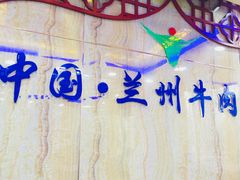 中国·兰州牛肉